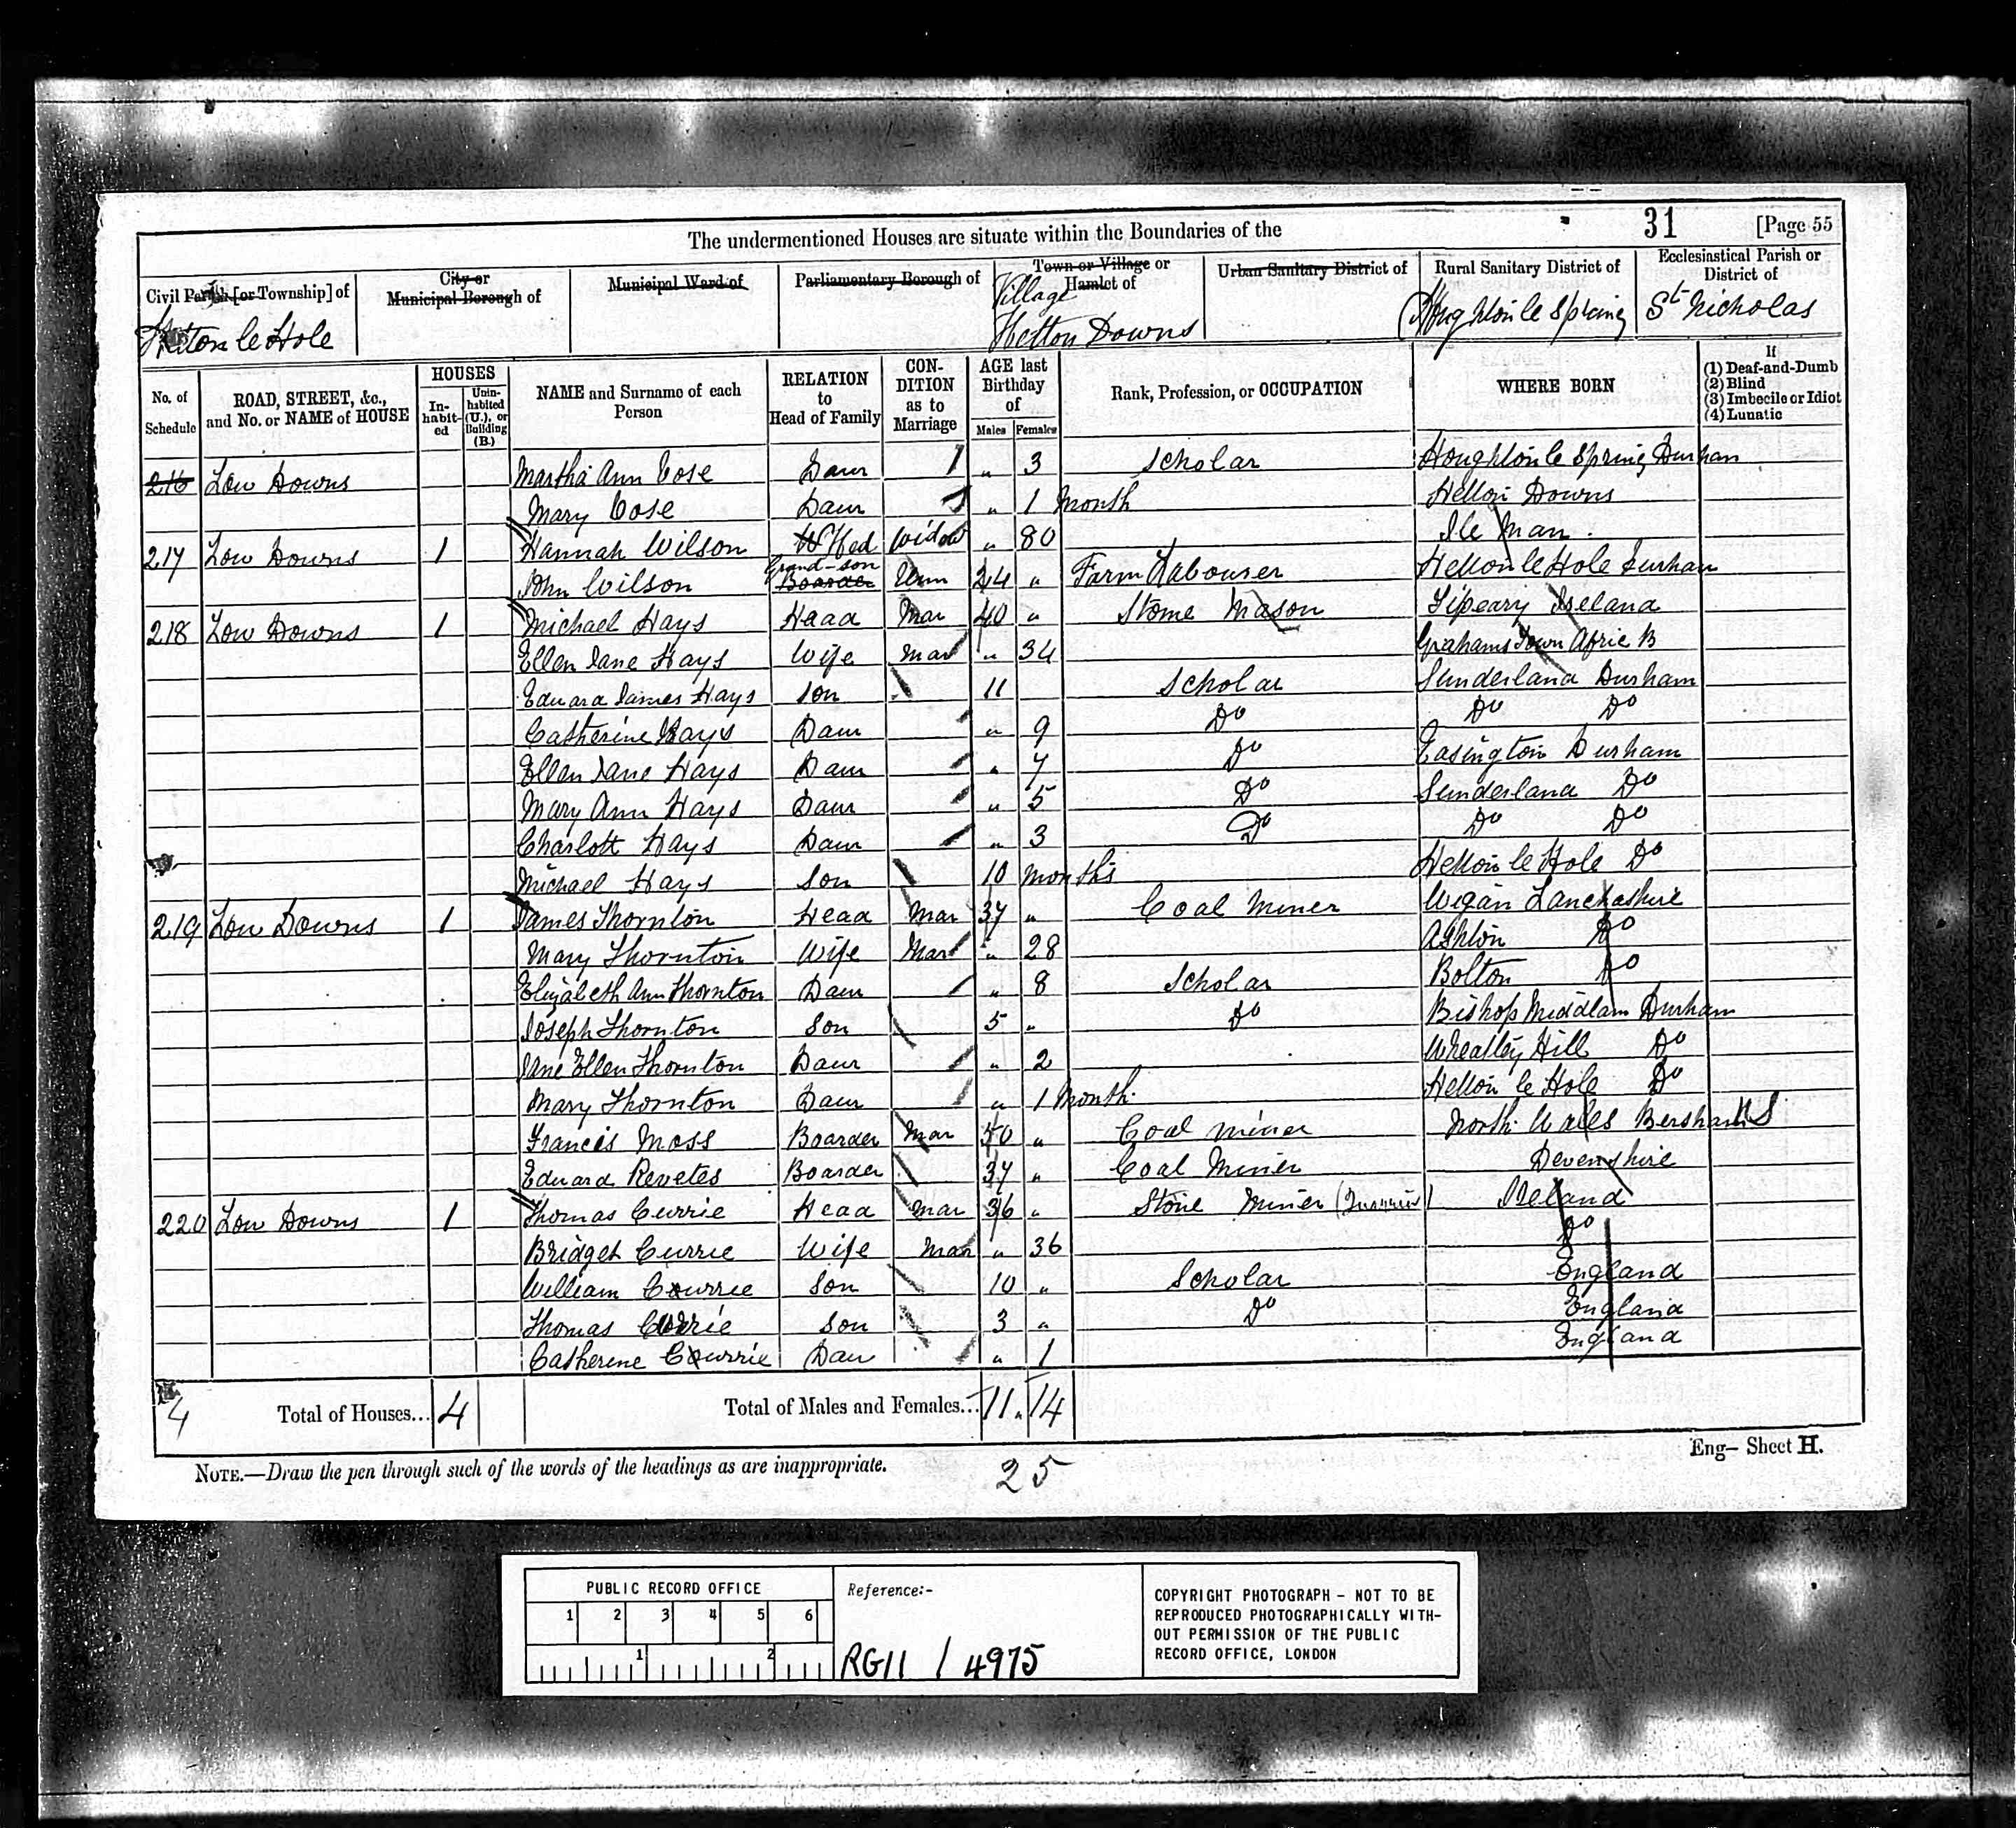 The undermentioned Houses are situate within the Boundaries of the 31 [Page 55
Civil Parish [or Township] of City or Municipal Borough of Municipal Ward of Parliamentary Borough of Town or Village or Hamlet of Urban Sanitary District of Rural Sanitary District of Ecclesiastical Parish or District of
Hetton le Hole Village Hetton Downs Houghton le Spring St Nicholas
No. of Schedule ROAD, STREET, &c., and No. or NAME of HOUSE HOUSES In-habit-ed Unin-habited (U.), or Building (B.) NAME and Surname of each Person RELATION to Head of Family CON-DITION as to Marriage AGE last Birthday of Males Females Rank, Profession, or OCCUPATION WHERE BORN If (1) Deaf-and-Dumb (2) Blind (3) Imbecile or Idiot (4) Lunatic
216 Low Downs Martha Ann Cose Daur " 3 Scholar Houghton le Spring Durham
Mary Cose Daur " 1 Month Hetton Downs
217 Low Downs 1 Hannah Wilson Hed Widow " 80 Ile Man
John Wilson Grand-son Boarder Unm 24 " Farm Labourer Hetton le Hole Durham
218 Low Downs 1 Michael Hays Head Mar 40 " Stone Mason Tipeary Ireland
Ellen Jane Hays Wife Mar " 34 Grahams Town Afric B
Edward James Hays Son 11 Scholar Sunderland Durham
Catherine Hays Daur " 9 Do Do Do
Ellen Jane Hays Daur " 7 Do Easington Durham
Mary Ann Hays Daur " 5 Do Sunderland Do
Charlott Hays Daur " 3 Do Do Do
Michael Hays Son 10 Months Hetton le Hole Do
219 Low Downs 1 James Thornton Head Mar 37 " Coal Miner Wigan Lanchashire
Mary Thornton Wife Mar " 28 Ashton Do
Elizabeth Ann Thornton Daur " 8 Scholar Bolton Do
Joseph Thornton Son 5 " Do Bishop Middlam Durham
Jane Ellen Thornton Daur " 2 Wheatley Hill Do
Mary Thornton Daur " 1 Month Hetton le Hole Do
Francis Moss Boarder Mar 40 " Coal Miner North Wales Bersham
Edward Revetes Boarder 37 " Coal Miner Devenshire
220 Low Downs 1 Thomas Currie Head Mar 36 " Stone Miner Ireland
Bridget Currie Wife Mar " 36 Do
William Currie Son 10 " Scholar England
Thomas Currie Son 3 " Do England
Catherene Currie Dau " 1 England
4 Total of Houses... 4 Total of Males and Females... 11 " 14
Eng- Sheet H.
NOTE.—Draw the pen through such of the words of the headings as are inappropriate. 25
PUBLIC RECORD OFFICE
1 2 3 4 5 6
1 2
Reference:-
RG11 / 4975
COPYRIGHT PHOTOGRAPH - NOT TO BE
REPRODUCED PHOTOGRAPHICALLY WITH-
OUT PERMISSION OF THE PUBLIC
RECORD OFFICE, LONDON